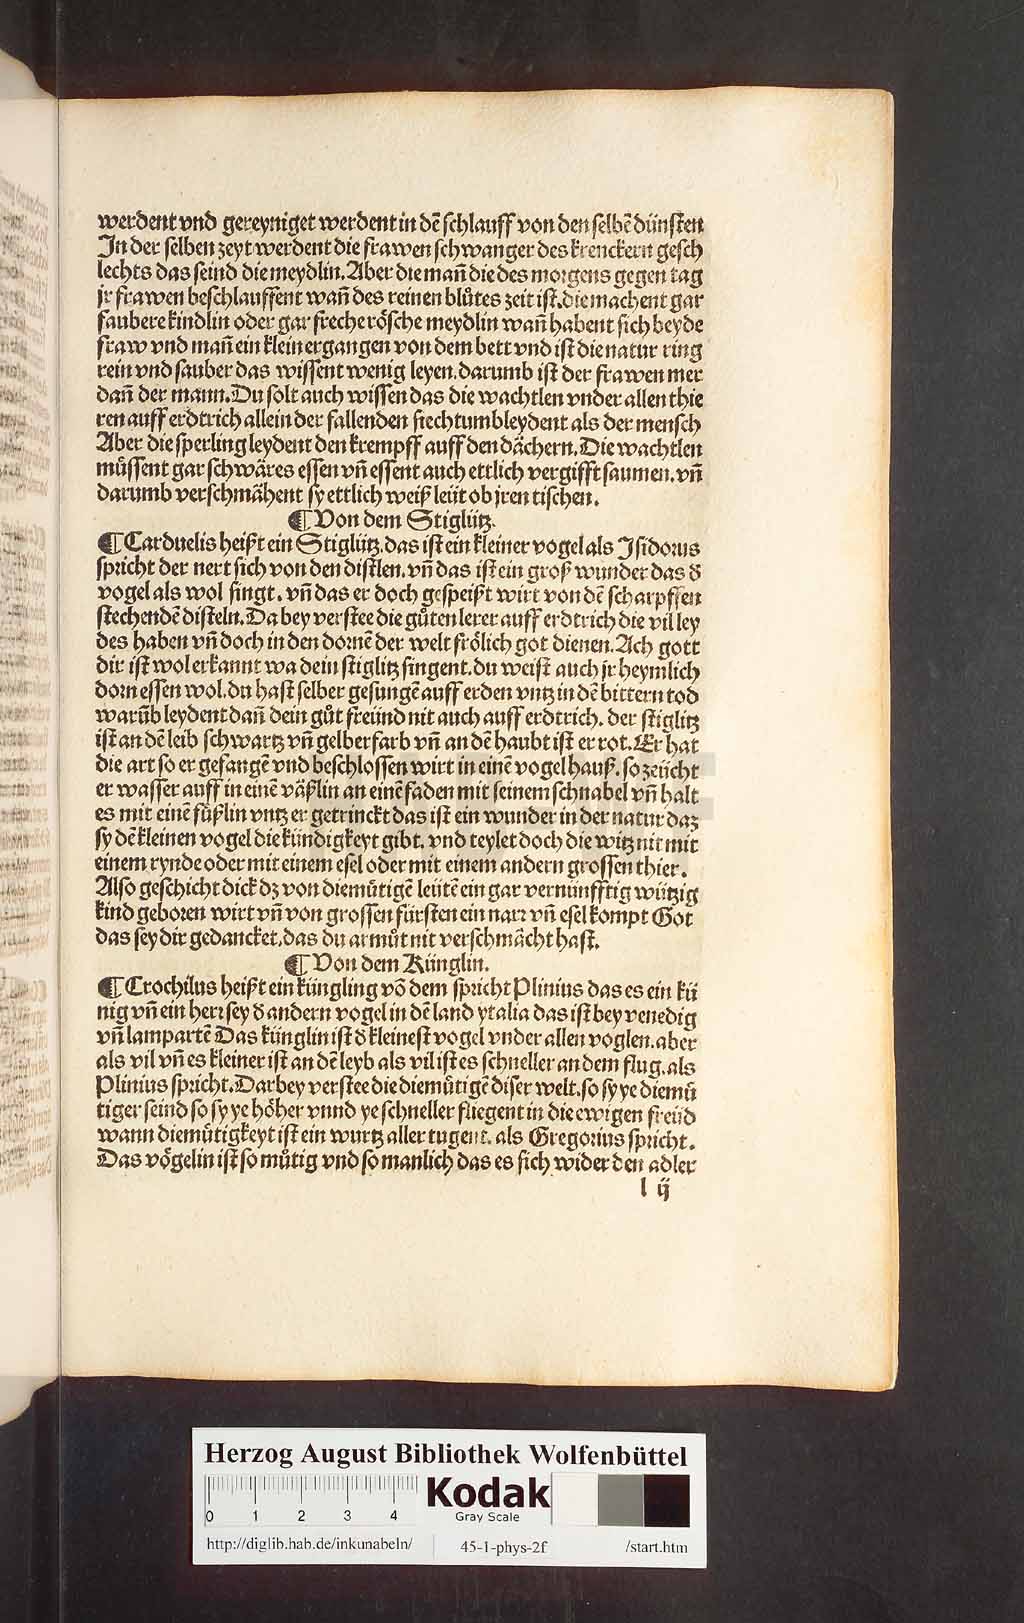 werdent vnd gereyniget werdent in dē schlauff von den selbē dünsten
In der selben zeyt werdent die frawen schwanger des krenckern gesch
lechts das seind die meydlin. Aber die man̄ die des morgens gegen tag
jr frawen beschlauffent wan̄ des reinen blůtes zeit ist. die machent gar
saubere kindlin oder gar freche rösche meydlin wan̄ habent sich beyde
fraw vnd man̄ ein klein ergangen von dem bett vnd ist die natur ring
rein vnd sauber das wissent wenig leyen. darumb ist der frawen mer
dan̄ der mann. Du solt auch wissen das die wachtlen vnder allen thie
ren auff erdtrich allein der fallenden siechtumb leydent als der mensch
Aber die sperling leydent den krempff auff den dächern. Die wachtlen
můssent gar schwäres essen vn̄ essent auch ettlich vergifft saumen. vn̄
darumb verschmähent sy ettlich weiß leüt ob jren tischen.
¶ Von dem Stiglütz.
¶ Carduelis heißt ein Stiglütz. das ist ein kleiner vogel als Isidorus
spricht der nert sich von den distlen. vn̄ das ist ein groß wunder das d̕
vogel als wol singt. vn̄ das er doch gespeißt wirt von dē scharpffen
stechendē disteln. Da bey verstee die gůten lerer auff erdtrich die vil ley
des haben vn̄ doch in den dornē der welt frölich got dienen. Ach gott
dir ist wol erkannt wa dein stiglitz singent. du weist auch jr heymlich
dorn essen wol. du hast selber gesungē auff erden vntz in dē bittern tod
warūb leydent dan̄ dein gůt freünd nit auch auff erdtrich. der stiglitz
ist an dē leib schwartz vn̄ gelber farb vn̄ an dē haubt ist er rot. Er hat
die art so er gefangē vnd beschlossen wirt in einē vogelhauß. so zeücht
er wasser auff in einē väßlin an einē faden mit seinem schnabel vn̄ halt
es mit einē fůßlin vntz er getrinckt das ist ein wunder in der natur daz
sy dē kleinen vogel die kündigkeyt gibt. vnd teylet doch die witz nit mit
einem rynde oder mit einem esel oder mit einem andern grossen thier.
Also geschicht dick dz von diemůtigē leütē ein gar vernünfftig wützig
kind geboren wirt vn̄ von grossen fürsten ein narr vn̄ esel kompt Got
das sey dir gedancket. das du armůt nit verschmächt hast.
¶ Von dem Künglin.
¶ Crochilus heißt ein küngling vō dem spricht Plinius das es ein kü
nig vn̄ ein herr sey d̕ andern vogel in dē land ytalia das ist bey venedig
vn̄ lampartē Das künglin ist d̕ kleinest vogel vnder allen voglen. aber
als vil vn̄ es kleiner ist an dē leyb als vil ist es schneller an dem flug. als
Plinius spricht. Darbey verstee die diemůtigē diser welt. so sy ye diemů
tiger seind so sy ye höher vnnd ye schneller fliegent in die ewigen freüd
wann diemůtigkeyt ist ein wurtz aller tugent. als Gregorius spricht.
Das vögelin ist so můtig vnd so manlich das es sich wider den adler
l ij
Herzog August Bibliothek Wolfenbüttel
0 1 2 3 4
Kodak
Gray Scale
http://diglib.hab.de/inkunabeln/ 45-1-phys-2f /start.htm